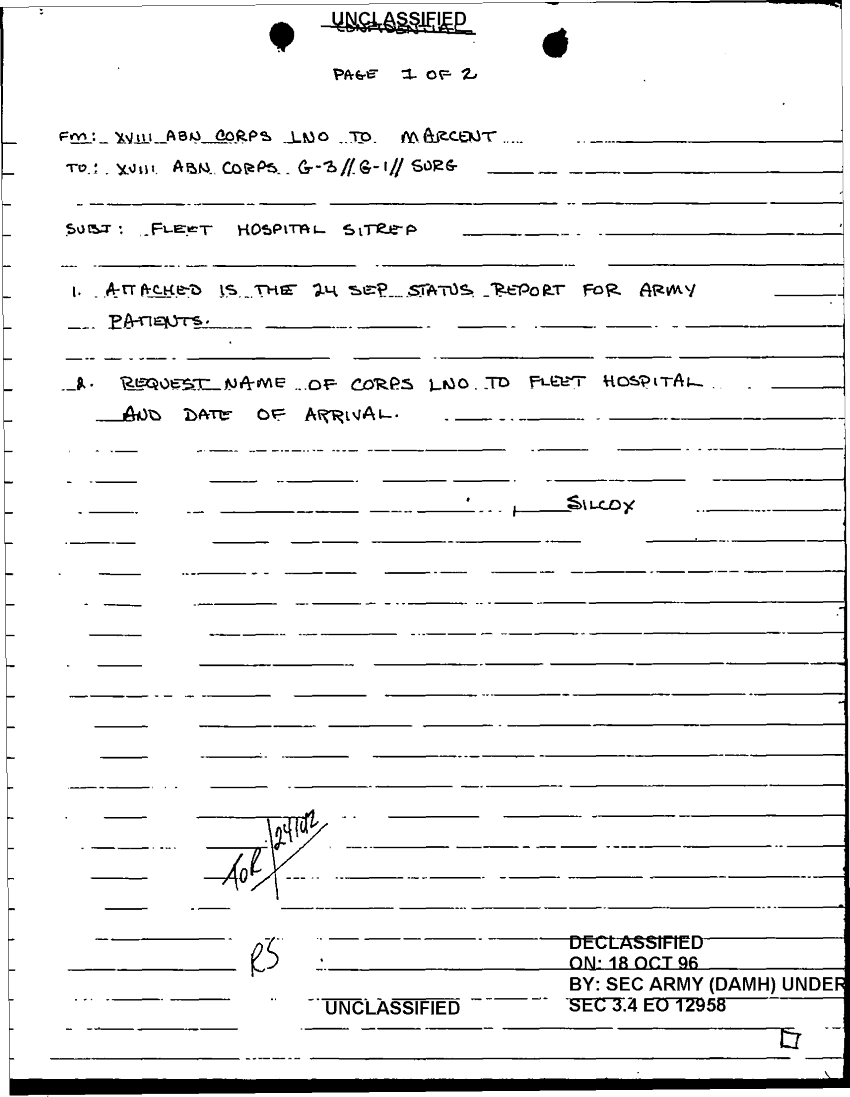 UNCLASSIFIED
CONFIDENTIAL
PAGE 1 OF 2
FM: XVIII ABN CORPS LNO TO MARCENT
TO: XVIII ABN CORPS G-3//G-1//SURG
SUBJ: FLEET HOSPITAL SITREP
1. ATTACHED IS THE 24 SEP STATUS REPORT FOR ARMY
PATIENTS.
2. REQUEST NAME OF CORPS LNO TO FLEET HOSPITAL
AND DATE OF ARRIVAL.
SILCOX
TOR
RS
DECLASSIFIED
ON: 18 OCT 96
BY: SEC ARMY (DAMH) UNDER
SEC 3.4 EO 12958
UNCLASSIFIED